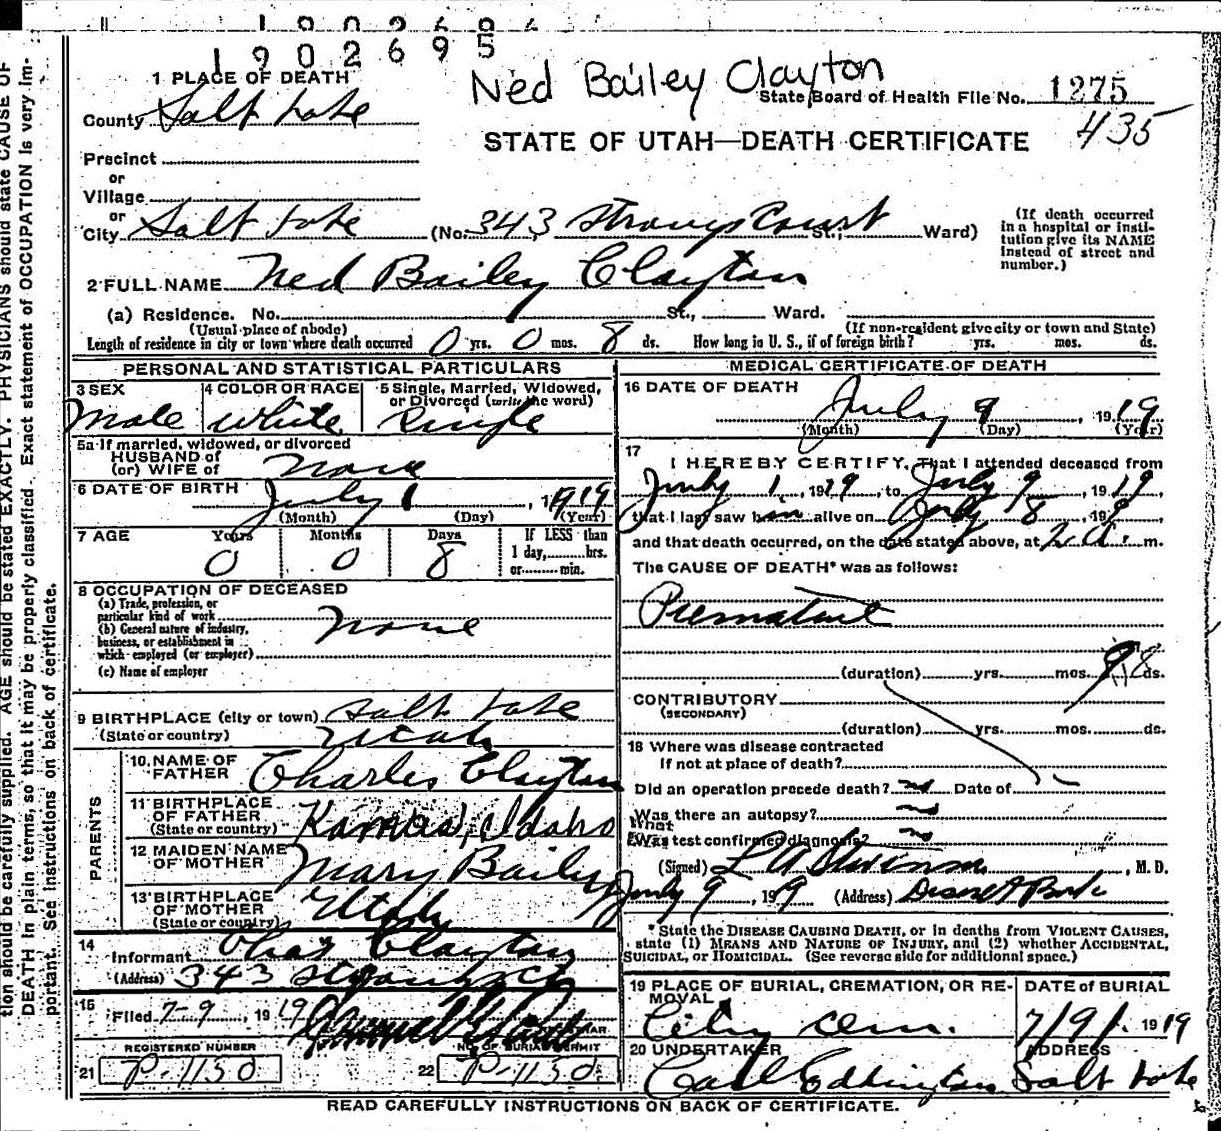 1902695
1 PLACE OF DEATH
Ned Bailey Clayton
State Board of Health File No. 1275
County Salt Lake
435
STATE OF UTAH—DEATH CERTIFICATE
Precinct
or
Village
or
City Salt Lake (No. 343 Strongs Court St., Ward)
(If death occurred
in a hospital or insti-
tution give its NAME
instead of street and
number.)
2 FULL NAME Ned Bailey Clayton
(a) Residence. No. St., Ward.
(Usual place of abode) (If non-resident give city or town and State)
Length of residence in city or town where death occurred 0 yrs. 0 mos. 8 ds. How long in U. S., if of foreign birth? yrs. mos. ds.
PERSONAL AND STATISTICAL PARTICULARS
3 SEX 4 COLOR OR RACE 5 Single, Married, Widowed,
or Divorced (write the word)
Male White Single
5a If married, widowed, or divorced
HUSBAND of
(or) WIFE of None
6 DATE OF BIRTH July 1, 1919
(Month) (Day) (Year)
7 AGE Years Months Days If LESS than
1 day, hrs.
or min.
0 0 8
8 OCCUPATION OF DECEASED
(a) Trade, profession, or
particular kind of work
(b) General nature of industry,
business, or establishment in
which employed (or employer)
None
(c) Name of employer
9 BIRTHPLACE (city or town) Salt Lake
(State or country) Utah
PARENTS
10 NAME OF
FATHER Charles Clayton
11 BIRTHPLACE
OF FATHER
(State or country) Idaho
12 MAIDEN NAME
OF MOTHER Mary Bailey
13 BIRTHPLACE
OF MOTHER
(State or country) Utah
14
Informant Chas Clayton
(Address) 343 Strongs Ct
15
Filed 7-9, 1919
REGISTRAR
REGISTERED NUMBER NO. OF BURIAL PERMIT
21 P-1130 22 P-1130
MEDICAL CERTIFICATE OF DEATH
16 DATE OF DEATH
July 9, 1919
(Month) (Day) (Year)
17
I HEREBY CERTIFY, That I attended deceased from
July 1, 1919, to July 9, 1919,
that I last saw him alive on July 8, 199,
and that death occurred, on the date stated above, at 2 a. m.
The CAUSE OF DEATH* was as follows:
Premature
(duration) yrs. mos. 8 ds.
CONTRIBUTORY
(SECONDARY)
(duration) yrs. mos. ds.
18 Where was disease contracted
If not at place of death?
Did an operation precede death? no Date of
Was there an autopsy? no
What
Was test confirmed diagnosis? no
(Signed) L A Stevenson, M. D.
July 9, 199 (Address) Deseret Bank
* State the DISEASE CAUSING DEATH, or in deaths from VIOLENT CAUSES,
state (1) MEANS AND NATURE OF INJURY, and (2) whether ACCIDENTAL,
SUICIDAL, or HOMICIDAL. (See reverse side for additional space.)
19 PLACE OF BURIAL, CREMATION, OR RE-
MOVAL
DATE of BURIAL
City Cem. 7/9/ 1919
20 UNDERTAKER ADDRESS
Carl Eddington Salt Lake
READ CAREFULLY INSTRUCTIONS ON BACK OF CERTIFICATE.
tion should be carefully supplied. AGE should be stated EXACTLY. PHYSICIANS should state CAUSE OF
DEATH in plain terms, so that it may be properly classified. Exact statement of OCCUPATION is very im-
portant. See instructions on back of certificate.